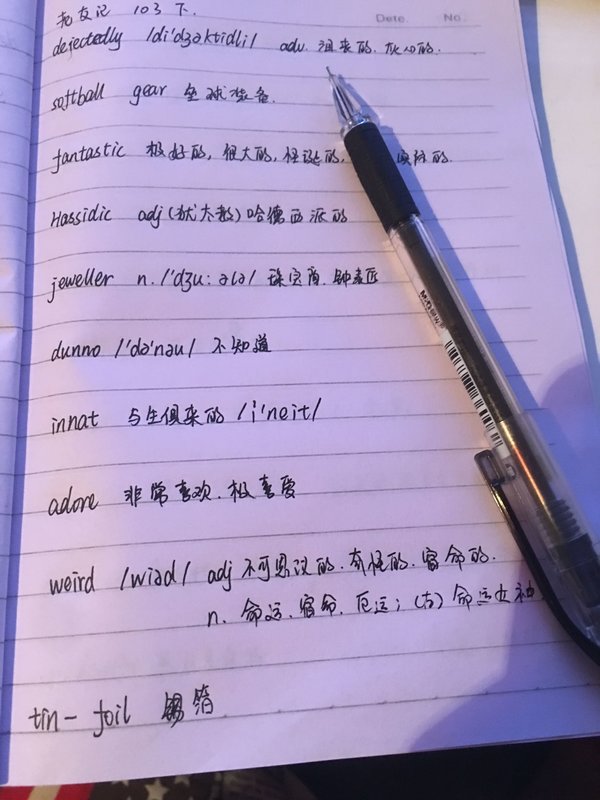 老友记 103 下.
Date. No.
dejectedly /di'dʒəktidli/ adv. 沮丧的. 灰心的.
softball gear 垒球装备.
fantastic 极好的, 很大的, 怪诞的, 实际的.
Hassidic adj (犹太教) 哈德西派的
jeweller n. /'dʒu:ələ/ 珠宝商. 钟表匠
dunno /'də'nəu/ 不知道
innat 与生俱来的 /i'neit/
adore 非常喜欢. 极喜爱
weird /wiəd/ adj 不可思议的. 奇怪的. 宿命的.
n. 命运. 宿命. 厄运; (古) 命运女神
tin-foil 锡箔